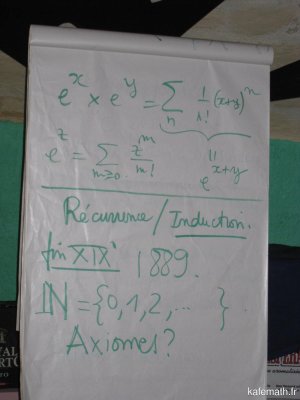 e^x × e^y = ∑_n 1/n! (x+y)^n
e^z = ∑_{n≥0} z^n/n!
e^{x+y}
Récurrence / Induction.
fin XIX^e 1889.
ℕ = {0, 1, 2, ... }.
Axiomes?
kafemath.fr